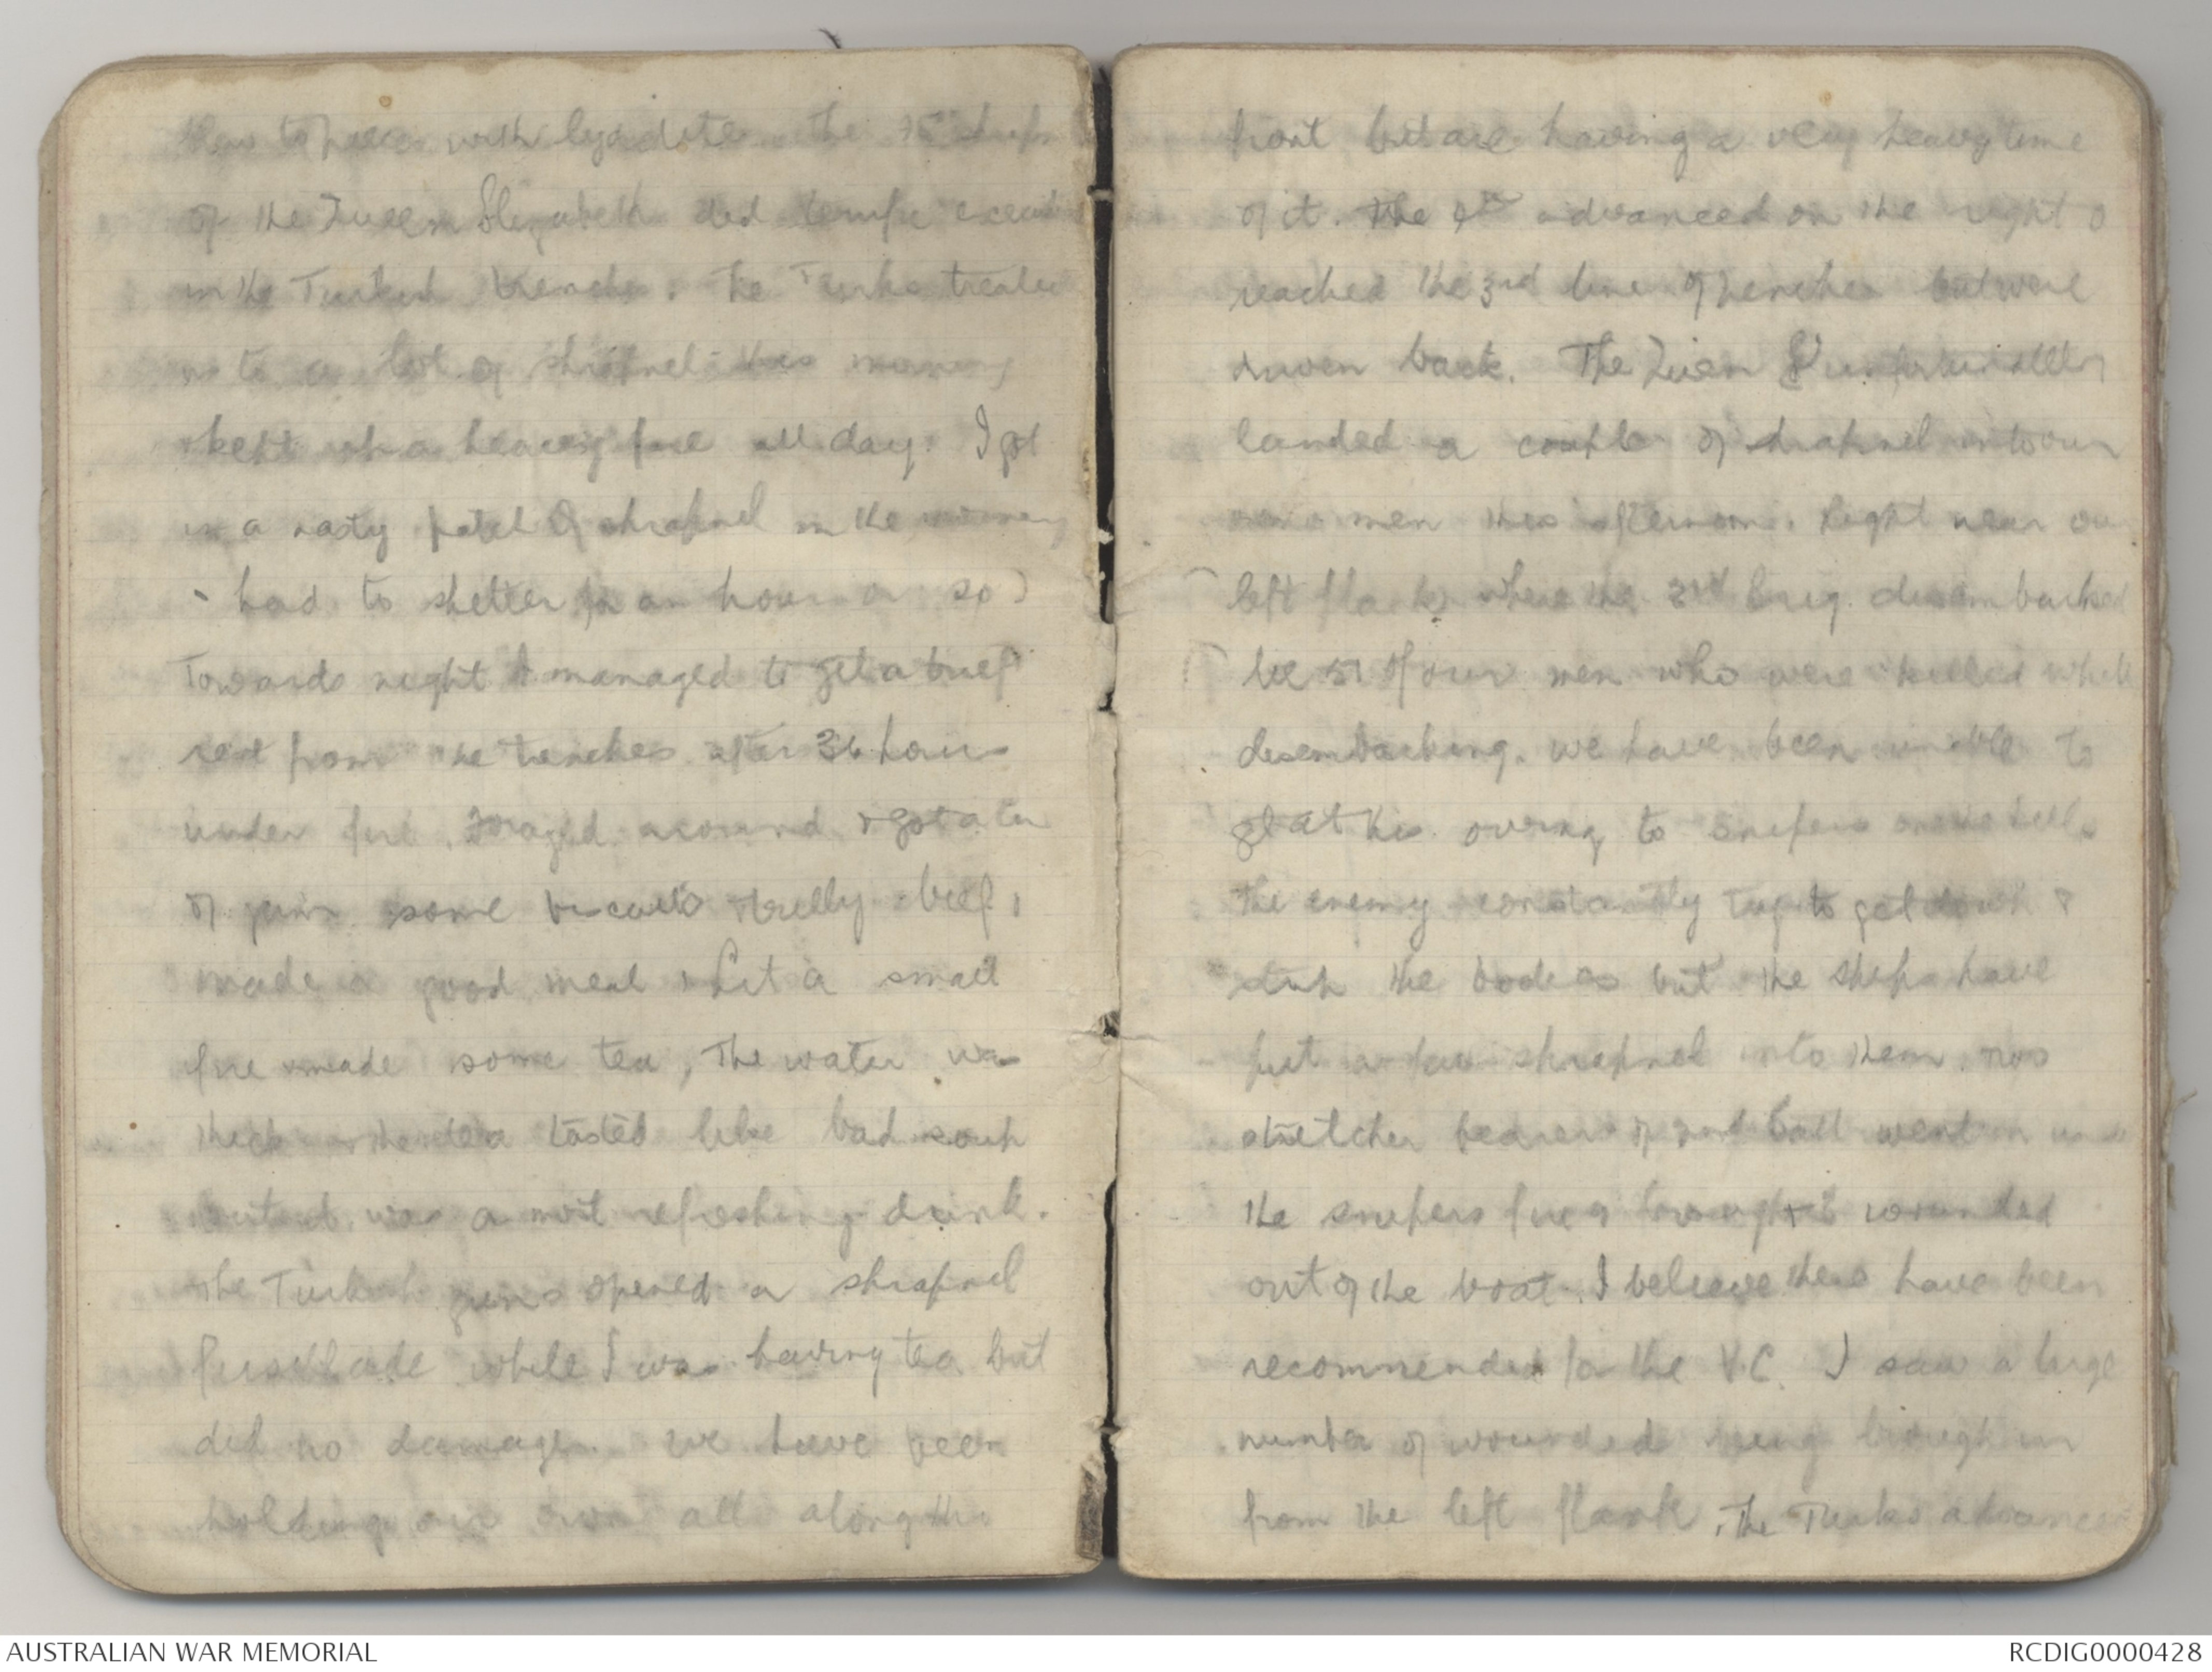 them to pieces with lyddite. The 15" shells
of the Queen Elizabeth did terrific
in the Turkish trenches. The Turks treated
us to a lot of shrapnel this morning
& kept up a heavy fire all day. I got
in a nasty patch of shrapnel in the morning
& had to shelter for an hour or so)
Towards night I managed to get a brief
rest from the trenches after 36 hours
under fire. Foraged around & got a tin
of jam some biscuits & bully beef,
made a good meal & lit a small
fire & made some tea, The water was
thick & the tea tasted like bad soup
but it was a most refreshing drink.
The Turkish guns opened a shrapnel
fusillade while I was having tea but
did no damage. We have been
holding our own all along the
front but are having a very heavy time
of it. The 9th advanced on the right &
reached the 3rd line of trenches but were
driven back. The Queen E unfortunately
landed a couple of shrapnel into our
own men this afternoon. Right near our
left flank where the 3rd Brig. disembarked
lie 51 of our men who were killed while
disembarking. We have been unable to
get at this owing to snipers on the hills
The enemy constantly try to get down &
the bodies but the ships have
put a few shrapnel into them.
stretcher bearers of 2nd Batt went in under
the snipers fire & brought wounded
out of the boat. I believe these have been
recommended for the V.C. I saw a large
number of wounded being brought in
from the left flank. The Turks advanced
AUSTRALIAN WAR MEMORIAL
RCDIG0000428